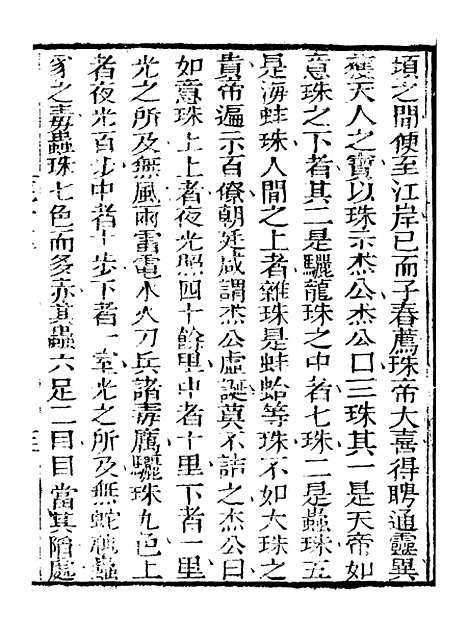 頃之間便至江岸已而子春薦珠帝大喜得聘通靈異
獲天人之寶以珠示杰公杰公曰三珠其一是天帝如
意珠之下者其二是驪龍珠之中者七珠二是蟲珠五
是海蚌珠人間之上者雜珠是蚌蛤等珠不如大珠之
貴帝遍示百僚朝廷咸謂杰公虛誕莫不詰之杰公曰
如意珠上上者夜光照四十餘里中者十里下者一里
光之所及無風雨雷電水火刀兵諸毒厲驪珠九色上
者夜光百步中者十步下者一室光之所及無蛇虺蟲
豸之毒蟲珠七色而多赤其蟲六足二目目當其陷處